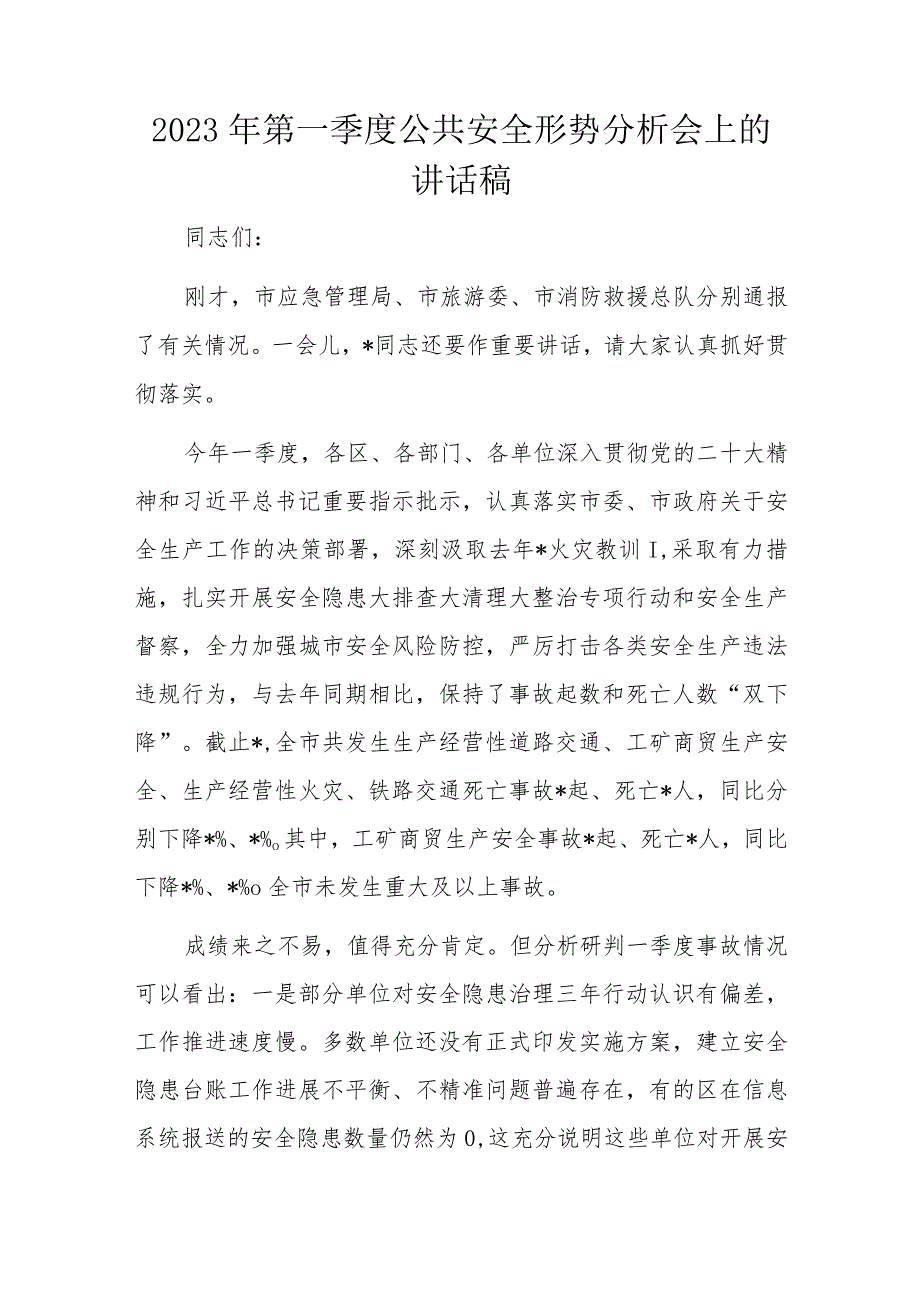 2023 年第一季度公共安全形势分析会上的
讲话稿
同志们：
刚才，市应急管理局、市旅游委、市消防救援总队分别通报
了有关情况。一会儿，*同志还要作重要讲话，请大家认真抓好贯
彻落实。
今年一季度，各区、各部门、各单位深入贯彻党的二十大精
神和习近平总书记重要指示批示，认真落实市委、市政府关于安
全生产工作的决策部署，深刻汲取去年*火灾教训 I,采取有力措
施，扎实开展安全隐患大排查大清理大整治专项行动和安全生产
督察，全力加强城市安全风险防控，严厉打击各类安全生产违法
违规行为，与去年同期相比，保持了事故起数和死亡人数“双下
降”。截止*,全市共发生生产经营性道路交通、工矿商贸生产安
全、生产经营性火灾、铁路交通死亡事故*起、死亡*人，同比分
别下降*%、*%o其中，工矿商贸生产安全事故*起、死亡*人，同比
下降*%、*%o 全市未发生重大及以上事故。
成绩来之不易，值得充分肯定。但分析研判一季度事故情况
可以看出：一是部分单位对安全隐患治理三年行动认识有偏差，
工作推进速度慢。多数单位还没有正式印发实施方案，建立安全
隐患台账工作进展不平衡、不精准问题普遍存在，有的区在信息
系统报送的安全隐患数量仍然为 0,这充分说明这些单位对开展安